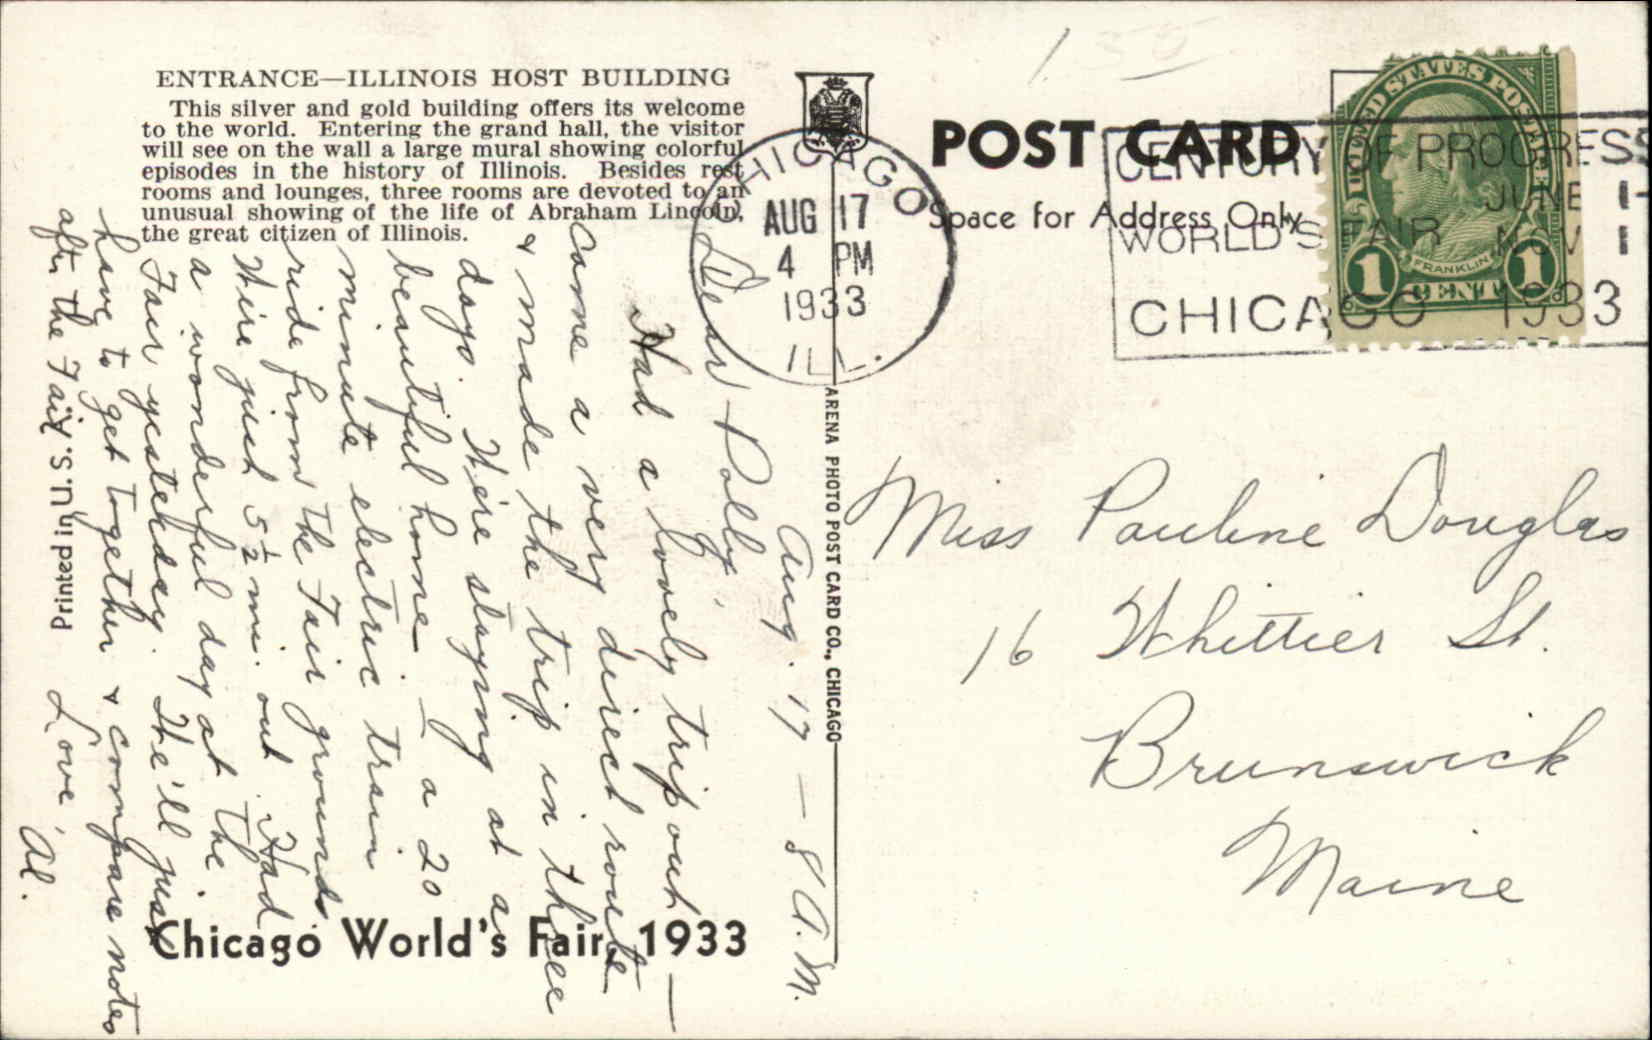 ENTRANCE—ILLINOIS HOST BUILDING
This silver and gold building offers its welcome
to the world. Entering the grand hall, the visitor
will see on the wall a large mural showing colorful
episodes in the history of Illinois. Besides rest
rooms and lounges, three rooms are devoted to an
unusual showing of the life of Abraham Lincoln,
the great citizen of Illinois.
1.50
POST CARD
Space for Address Only
CHICAGO
AUG 17
4 PM
1933
ILL.
CENTURY OF PROGRESS
JUNE 1-
WORLD'S FAIR NOV 1
CHICAGO 1933
UNITED STATES POSTAGE
FRANKLIN
1 CENT 1
Aug. 17 — 8 A.M.
Dear Polly,
Had a lovely trip out —
Came a very direct route
& made the trip in three
days. We're staying at a
beautiful home — a 20
minute electric train
ride from the Fair grounds.
We're just 5½ mi. out. Had
a wonderful day at the
Fair yesterday. We'll just
have to get together & compare notes
after the Fair.
Love,
Al.
Miss Pauline Douglas
16 Whittier St.
Brunswick
Maine
ARENA PHOTO POST CARD CO., CHICAGO
Printed in U. S. A.
Chicago World's Fair, 1933